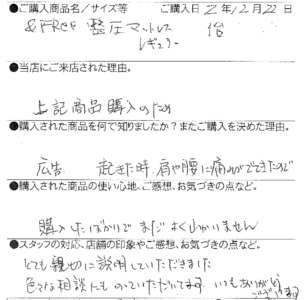 ●ご購入商品名／サイズ等　ご購入日 2年12月22日
&FREE 整圧マットレス
レギュラー
●当店にご来店された理由。
上記商品購入のため
●購入された商品を何で知りましたか？またご購入を決めた理由。
広告 起きた時、肩や腰に痛みがでてきたので
●購入された商品の使い心地、ご感想、お気づきの点など。
購入したばかりでまだよく分かりません
●スタッフの対応、店舗の印象やご感想、お気づきの点など。
とても親切に説明していただきました
色々な相談にものっていただいてます。いつもありがとう
ございます